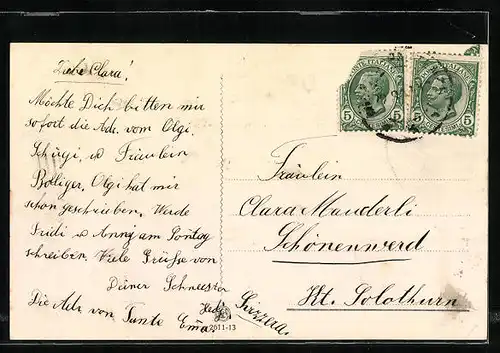 Liebe Clara!
Möchte Dich bitten mir
sofort die Adr. vom Olgi,
Schürgi, u Fräulein
Bolliger, Olgi hat mir
schon geschrieben, Werde
Fridi u Anny am Sontag
schreiben. Viele Grüsse von
Deiner Schwester
Die Adr. von Tante Ema
Fräulein
Clara Mauderli
Schönenwerd
Kt. Solothurn
Svizzera.
2011-13
5 5
5 5